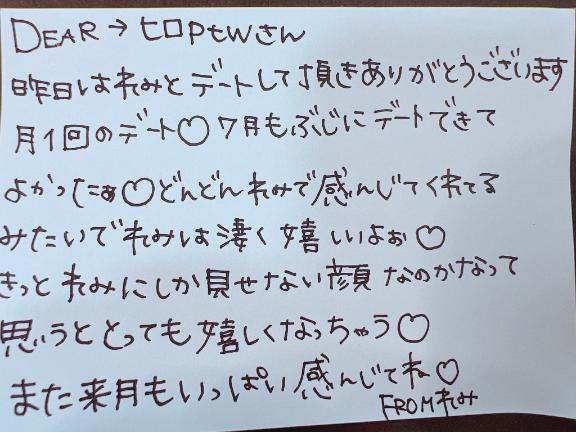 DEAR→ヒロPtwさん
昨日はれみとデートして頂きありがとうございます
月1回のデート♡7月もぶじにデートできて
よかったぁ♡どんどんれみで感じてくれてる
みたいでれみは凄く嬉しいよぉ♡
きっとれみにしか見せない顔なのかなって
思うととっても嬉しくなっちゃう♡
また来月もいっぱい感んじてね♡
FROMれみ